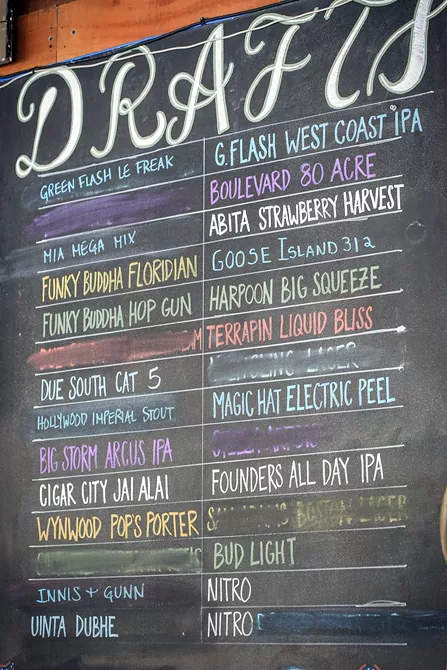 DRAFTS
GREEN FLASH LE FREAK
MIA MEGA MIX
FUNKY BUDDHA FLORIDIAN
FUNKY BUDDHA HOP GUN
DUE SOUTH CAT 5
HOLLYWOOD IMPERIAL STOUT
BIG STORM ARCUS IPA
CIGAR CITY JAI ALAI
WYNWOOD POP'S PORTER
INNIS + GUNN
UINTA DUBHE
G.FLASH WEST COAST IPA
BOULEVARD 80 ACRE
ABITA STRAWBERRY HARVEST
GOOSE ISLAND 312
HARPOON BIG SQUEEZE
TERRAPIN LIQUID BLISS
LAGER
MAGIC HAT ELECTRIC PEEL
FOUNDERS ALL DAY IPA
BOSTON LAGER
BUD LIGHT
NITRO
NITRO